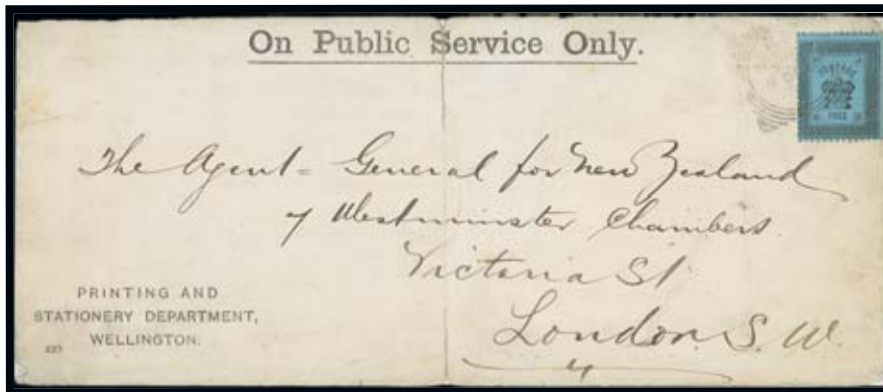 On Public Service Only.
POSTAGE
FREE
The Agent-General for New Zealand
7 Westminster Chambers
Victoria St
London. S. W.
PRINTING AND
STATIONERY DEPARTMENT,
WELLINGTON.